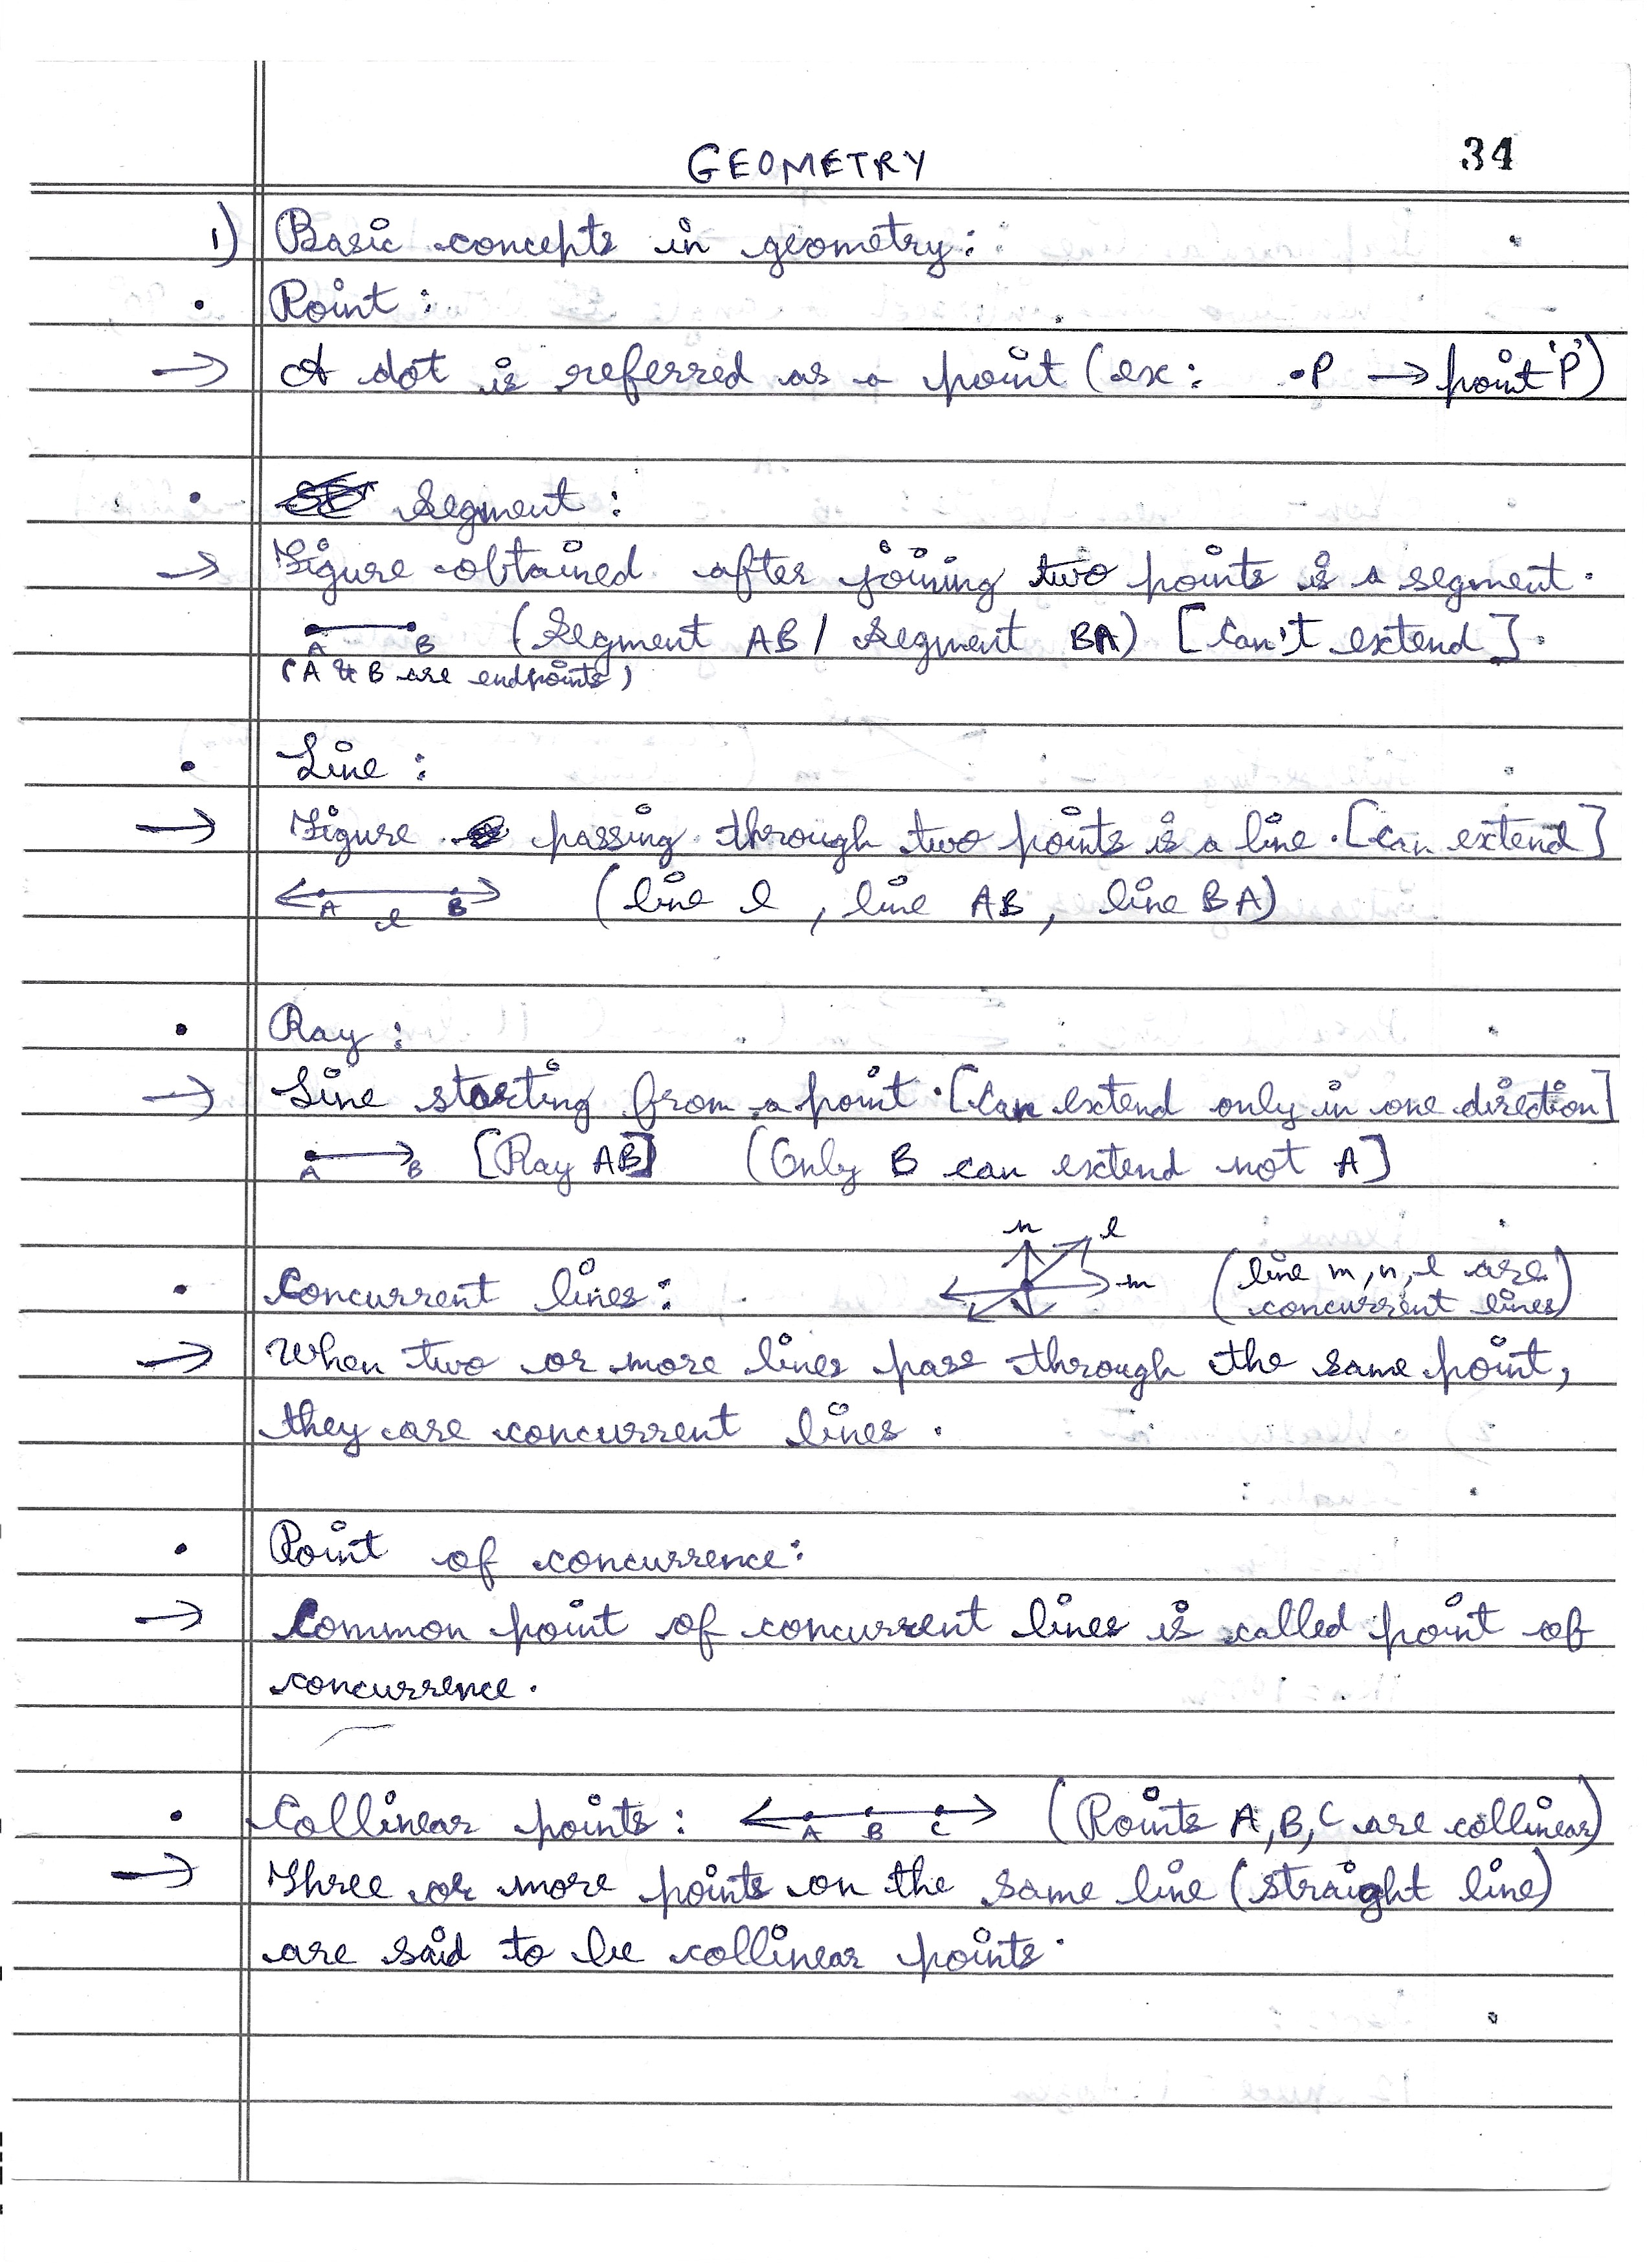 GEOMETRY 34
1) Basic concepts in geometry:
• Point:
→ A dot is referred as a point (ex: •P → point 'P')
• Segment:
→ Figure obtained after joining two points is a segment.
A B (Segment AB / Segment BA) [Can't extend].
(A & B are endpoints)
• Line:
→ Figure passing through two points is a line. [Can extend]
A l B (line l, line AB, line BA)
• Ray:
→ Line starting from a point. [Can extend only in one direction]
A B [Ray AB] (Only B can extend not A]
n l
• Concurrent lines: m (line m, n, l are
concurrent lines)
→ When two or more lines pass through the same point,
they are concurrent lines.
• Point of concurrence:
→ Common point of concurrent lines is called point of
concurrence.
• Collinear points: A B C (Points A, B, C are collinear)
→ Three or more points on the same line (straight line)
are said to be collinear points.